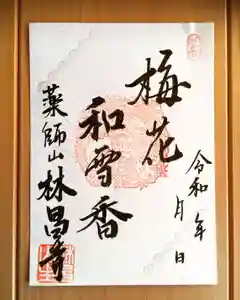 梅花
和雪香
令和 年
月 日
薬師山 林昌寺